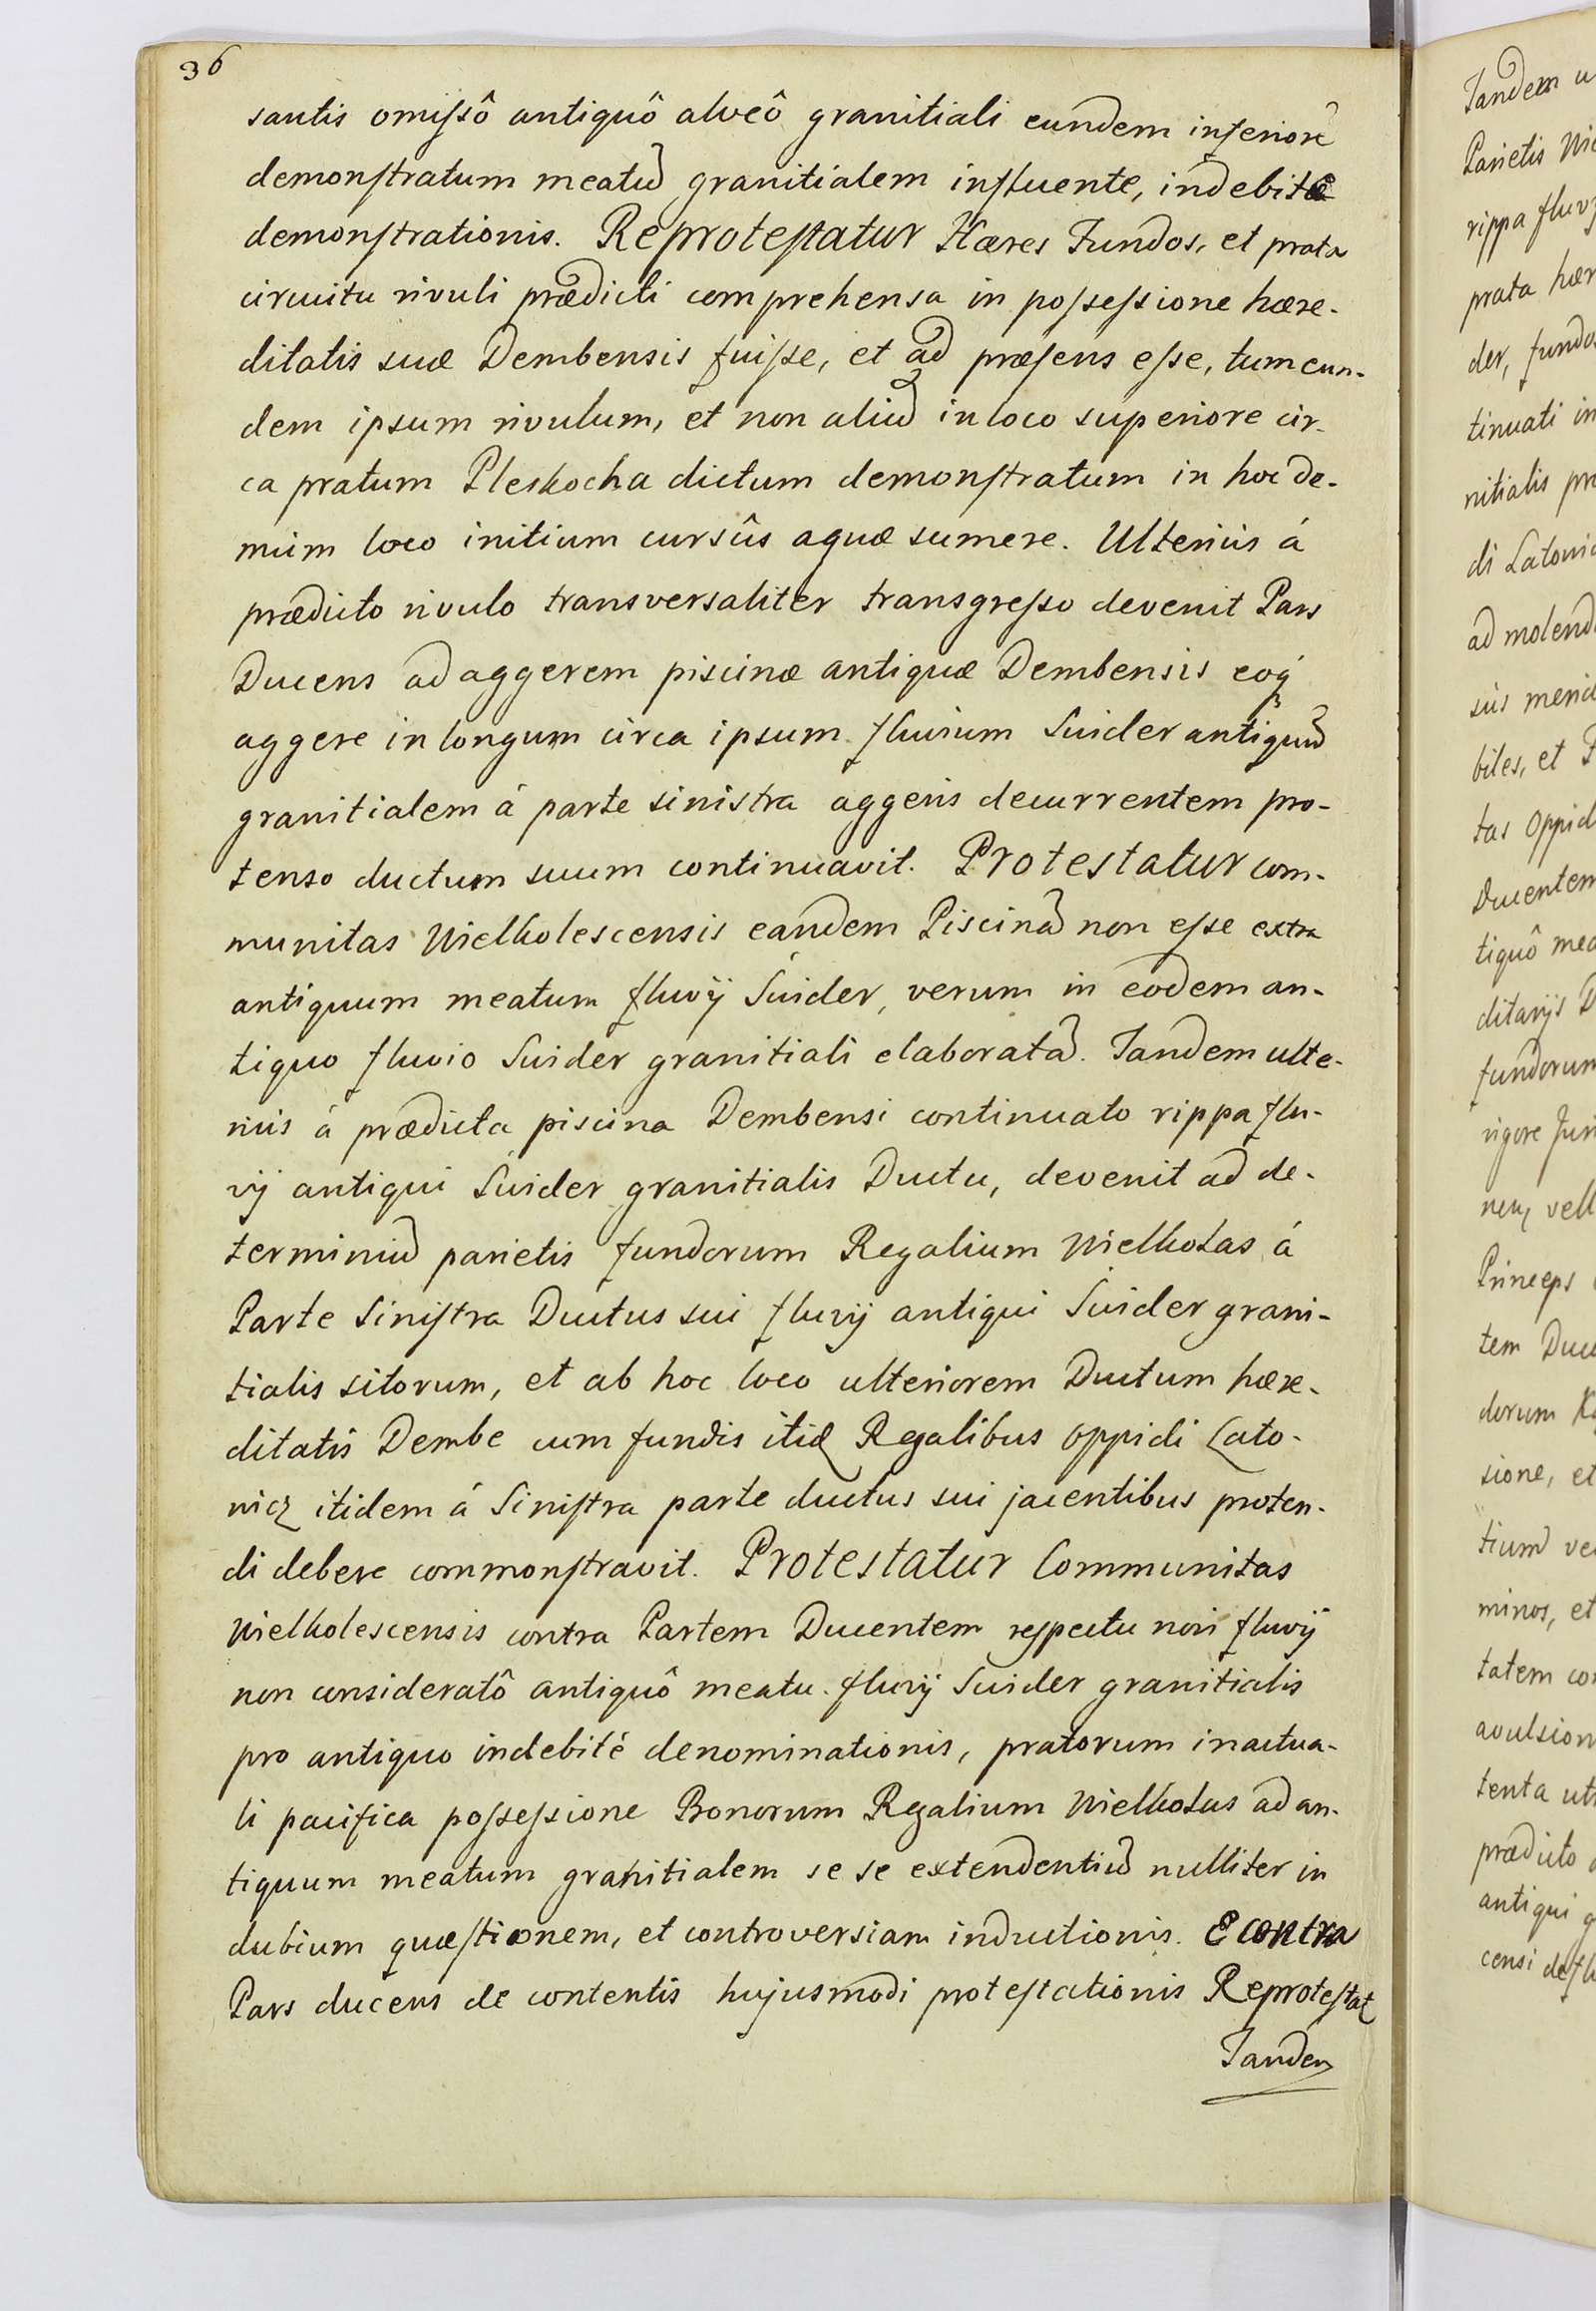 36
santis omiſsô antiquô alveô granitiali eundem inferiorē
demonſtratum meatū granitialem influente, indebitæ
demonſtrationis. Reproteſtatur Hæres Fundos, et prata
circuitu rivuli prædicti comprehensa in poſseſsione hære-
ditatis suæ Dembensis fuiſse, et ad præſens eſse, tum eun-
dem ipsum rivulum, et non aliud in loco superiore cir-
ca pratum Pleskocha dictum demonſtratum in hoc de-
mùm loco initium cursûs aquæ sumere. Ulteriùs á
prædicto rivulo transversaliter transgreſso devenit Pars
Ducens ad aggerem piscinæ antiquæ Dembensis eoq́
aggere in longum circa ipsum fluvium Suider antiquū
granitialem á parte sinistra aggeris decurrentem pro-
tenso ductum suum continuavit. Protestatur com-
munitas Wielkolescensis eandem Piscinā non eſse extra
antiquum meatum fluvij Śuider, verum in eodem an-
tiquo fluvio Suider granitiali elaboratā. Tandem ulte-
riùs á prædicta piscina Dembensi continuato rippa flu-
vij antiqui Śuider granitialis Ductu, devenit ad de-
terminiū parietis fundorum Regalium Wielkolas á
Parte Siniſtra Ductus sui fluvij antiqui Suider grani-
tialis sitorum, et ab hoc loco ulteriorem Ductum hære-
ditatis Dembe cum fundis itid Regalibus Oppidi Lato-
wicz itidem á Siniſtra parte ductus sui jacentibus proten-
di debere commonſtravit. Protestatur Communitas
Wielkolescensis contra Partem Ducentem reſpectu novi fluvij
non consideratô antiquô meatu fluvij Suider granitialis
pro antiquo indebité denominationis, pratorum in actua-
li pacifica poſseſsione Bonorum Regalium Wielkolas ad an-
tiquum meatum granitialem se se extendentiū nulliter in
dubium quæſtionem, et controversiam inductionis. E contra
Pars ducens de contentis hujusmodi proteſtationis Reproteſtat
Tandem
Tandem
Parietis
rippa
prata
der,
tinuati in
nitialis
di
ad
biles, et
tas Oppid
Ducentem
tiquô
ditarijs
fundorum
rigore
Princeps
tem
dorum
sione, et
minos, et
tatem
tenta
prædicto
antiqui
censi